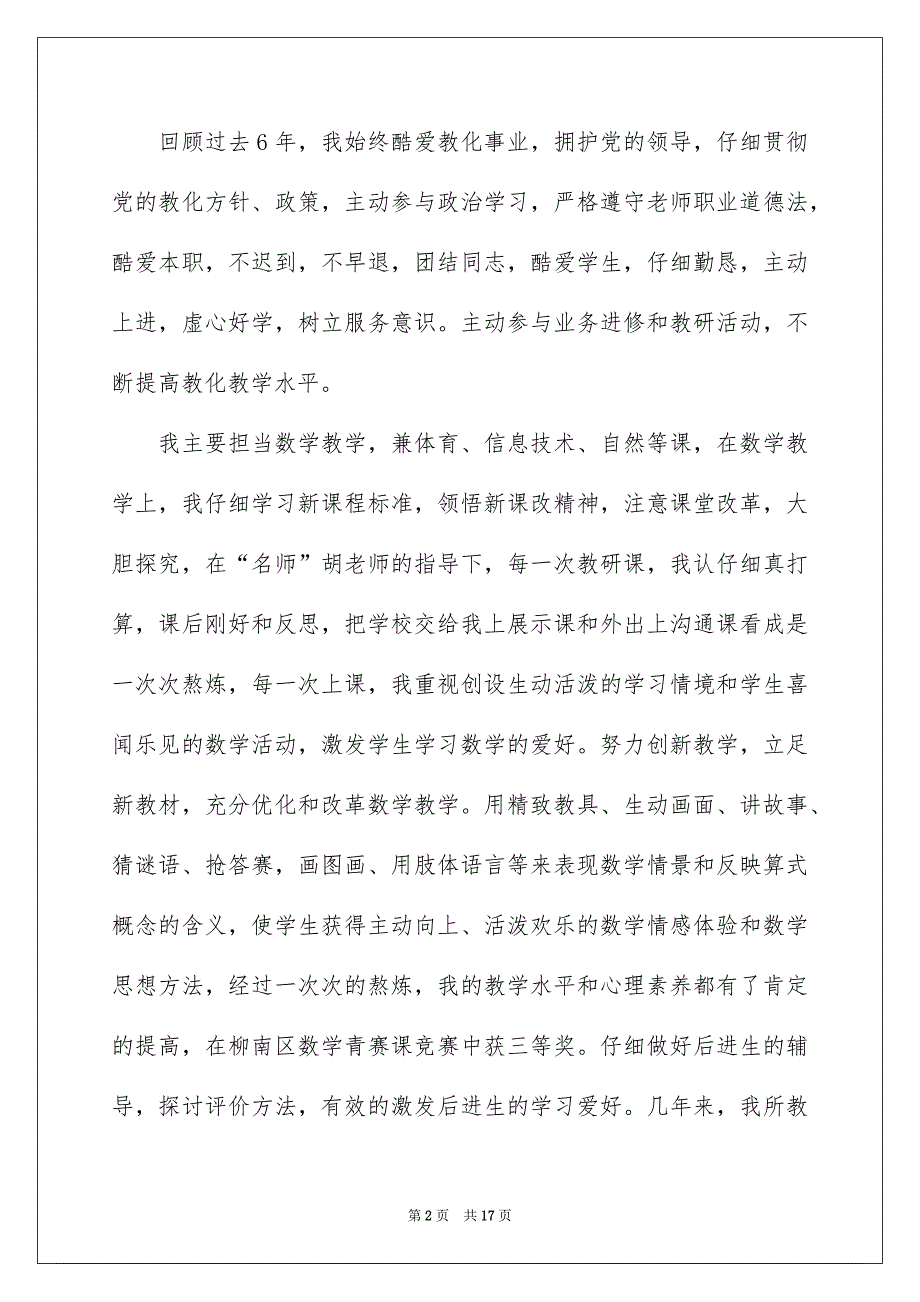 回顾过去6年，我始终酷爱教化事业，拥护党的领导，仔细贯彻
党的教化方针、政策，主动参与政治学习，严格遵守老师职业道德法，
酷爱本职，不迟到，不早退，团结同志，酷爱学生，仔细勤恳，主动
上进，虚心好学，树立服务意识。主动参与业务进修和教研活动，不
断提高教化教学水平。
我主要担当数学教学，兼体育、信息技术、自然等课，在数学教
学上，我仔细学习新课程标准，领悟新课改精神，注意课堂改革，大
胆探究，在“名师”胡老师的指导下，每一次教研课，我认仔细真打
算，课后刚好和反思，把学校交给我上展示课和外出上沟通课看成是
一次次熬炼，每一次上课，我重视创设生动活泼的学习情境和学生喜
闻乐见的数学活动，激发学生学习数学的爱好。努力创新教学，立足
新教材，充分优化和改革数学教学。用精致教具、生动画面、讲故事、
猜谜语、抢答赛，画图画、用肢体语言等来表现数学情景和反映算式
概念的含义，使学生获得主动向上、活泼欢乐的数学情感体验和数学
思想方法，经过一次次的熬炼，我的教学水平和心理素养都有了肯定
的提高，在柳南区数学青赛课竞赛中获三等奖。仔细做好后进生的辅
导，探讨评价方法，有效的激发后进生的学习爱好。几年来，我所教
第2页 共17页